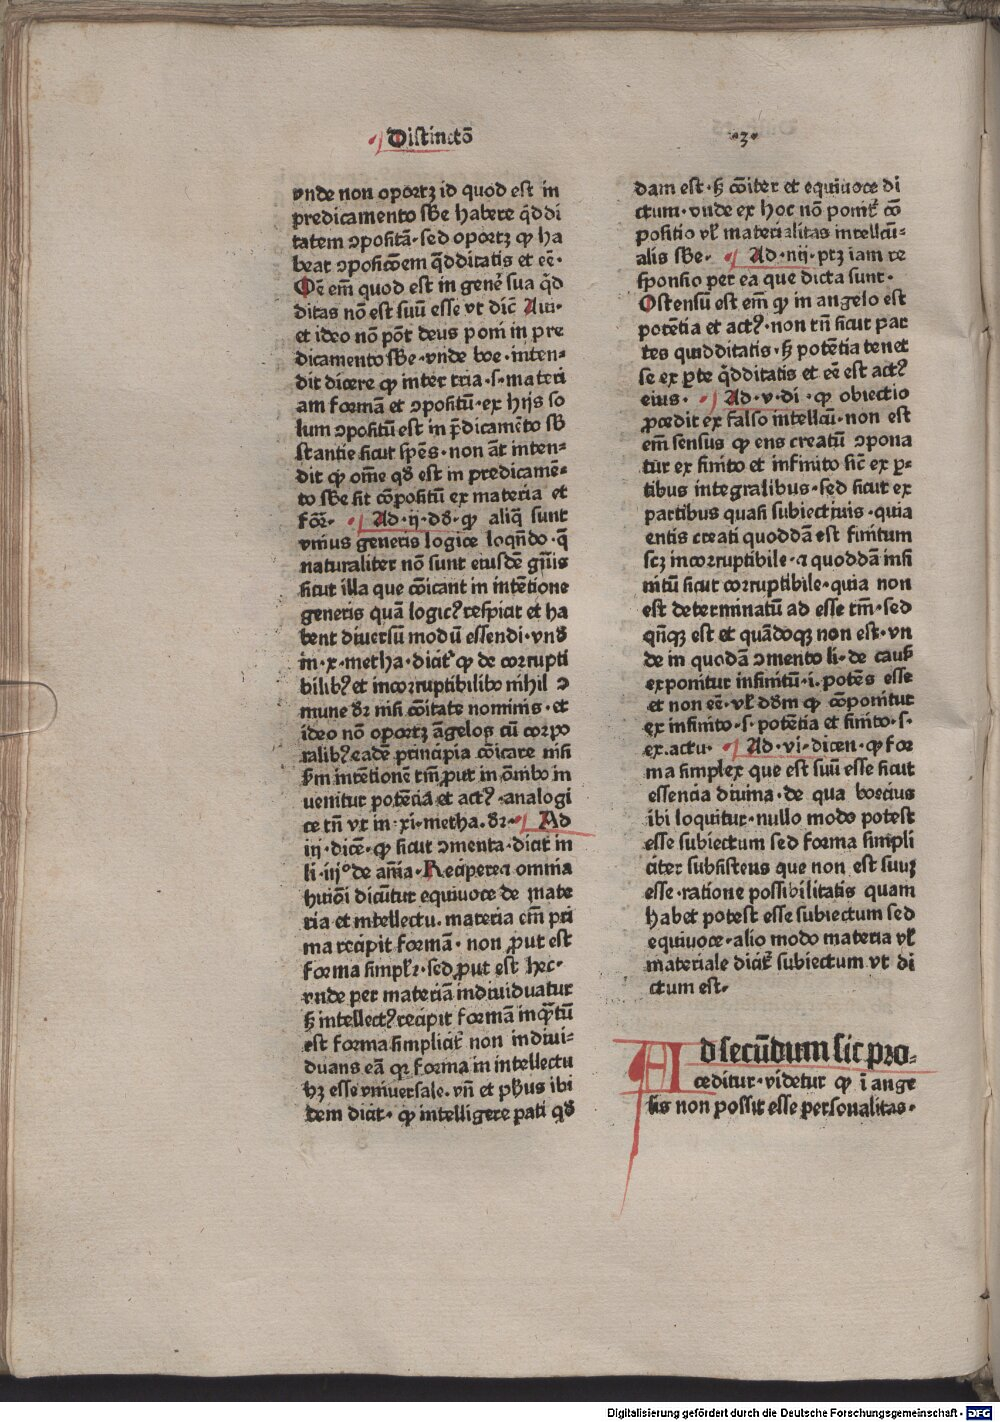 Distinctō
·3·
vnde non oportꝫ id quod est in
predicamento sb̄e habere q̄ddi
tatem ↄpositā· sed oportꝫ ꝙ ha
beat ↄposicōem q̄dditatis et eē·
Oē em̄ quod est in gene᷒ sua qd̄
ditas nō est suū esse vt dic̄ Aui·
et ideo nō pōt deus poni in pre
dicamento sb̄e· vnde boe· inten⸗
dit dicere ꝙ inter tria· s· materi
am formā et ↄpositū· ex hijs so
lum ↄpositū est in p̄dicamēto sb̄
stantie sicut sp̄es· non āt inten⸗
dit ꝙ om̄e qd̄ est in predicamē⸗
to sb̄e sit cōpositū ex materia et
for̄· Ad· ij· dd̄· ꝙ aliq̄ sunt
vnius generis logice loqn̄do· q̄
naturaliter nō sunt eiusdē gn̄is
sicut illa que cōicant in intētione
generis quā logicꝰ respicit et ha
bent diuersū modū essendi· vnd̄
in· x· metha· dicit᷒ ꝙ de corrupti
bilibꝰ et incorruptibilibo nihil ↄ
mune dr̄ nisi cōitate nominis· et
ideo nō oportꝫ āgelos cū corpo
ralibꝰ eadē principia cōicare nisi
s̄m intētionē tm̄ ꝓut in ōmibo in
uenitur potētia et actꝰ· analogi
ce tn̄ vt in· xi· metha· dr̄· Ad
iij· dicē· ꝙ sicut ↄmenta· dicit in
li· iijº de aīa· Recipere ⁊ omnia
huiōi dicūtur equiuoce de mate
ria et intellectu· materia em̄ pri
ma recipit formā· non ꝓut est
forma simplr᷒· sed ꝓut est hec·
vnde per materiā indiuiduatur
ꝫ̄ intellectꝰ recipit formā inq̄tū
est forma simplicit᷒ non indiui⸗
duans eā qr forma in intellectu
hꝫ esse vniuersale· vn̄ et ph̄us ibi
dem dicit· ꝙ intelligere pati qd̄
dam est· ꝫ̄ cōiter et equiuoce di
ctum· vnde ex hoc nō ponit᷒ cō
positio vl̄ materialitas intellcū⸗
alis sb̄e· Ad· iiij· ptꝫ iam re
sponsio per ea que dicta sunt·
Ostensū est em̄ ꝙ in angelo est
potētia et actꝰ· non tn̄ sicut par
tes quidditatis· ꝫ̄ potētia tenet
se ex ꝑte q̄dditatis et eē est actꝰ
eius· Ad· v· di· ꝙ obiectio
ꝓcedit ex falso intellcū· non est
em̄ sensus ꝙ ens creatū ↄpona
tur ex finito et infinito sic̄ ex ꝑ⸗
tibus integralibus· sed sicut ex
partibus quasi subiectiuis· quia
entis creati quoddā est finitum
scꝫ incorruptibile· ⁊ quoddā infi
nitū sicut corruptibile· quia non
est determinatū ad esse tm̄· sed
qn̄qꝫ est et quādoqꝫ non est· vn
de in quodā ↄmento li· de caus̄
exponitur infinitū· i· potēs esse
et non eē· vl̄ dd̄m ꝙ cōponitur
ex infinito· s· potētia et finito· s·
ex actu· Ad· vi· dicen· ꝙ for
ma simplex que est suū esse sicut
essencia diuina· de qua boecius
ibi loquitur· nullo modo potest
esse subiectum sed forma simpli
citer subsistens que non est suuꝫ
esse· ratione possibilitatis quam
habet potest esse subiectum sed
equiuoce· alio modo materia vl̄
materiale dicit᷒ subiectum vt di
ctum est·
Ad secūdum sic pro⸗
ceditur· videtur ꝙ ī ange
lis non possit esse personalitas·
Digitalisierung gefördert durch die Deutsche Forschungsgemeinschaft - DFG